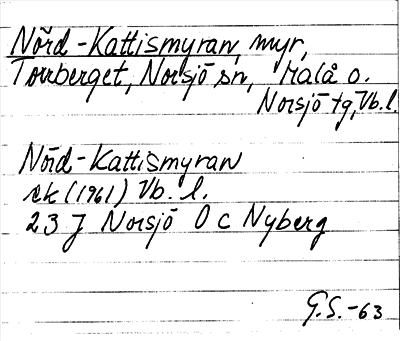 Nörd-Kattismyran, myr,
Torrberget, Norsjö sn, Malå o.
Norsjö tg, Vb. l.
Nörd-Kattismyran
ek (1961) Vb. l.
23 J Norsjö 0 c Nyberg
G.S.-63